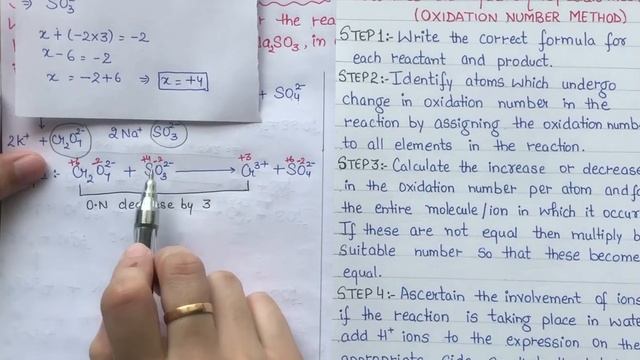 ⇒ SO₃²⁻
x + (-2×3) = -2
x-6 = -2
x = -2+6 ⇒ x = +4
the rea
Na₂SO₃, in
+ SO₄²⁻
2K⁺ + Cr₂O₇²⁻ 2Na⁺ SO₃²⁻
+6 -2 +4 -2 +3 +6 -2
Cr₂O₇²⁻ + SO₃²⁻ ⟶ Cr³⁺ + SO₄²⁻
O.N decrease by 3
(OXIDATION NUMBER METHOD)
STEP 1:- Write the correct formula for
each reactant and product.
STEP 2:- Identify atoms which undergo
change in oxidation number in the
reaction by assigning the oxidation numb
to all elements in the reaction.
STEP 3:- Calculate the increase or decreas
in the oxidation number per atom and fo
the entire molecule/ion in which it occur
If these are not equal then multiply b
suitable number so that these become
equal.
STEP 4:- Ascertain the involvement of ions
if the reaction is taking place in wate
add H⁺ ions to the expression on the